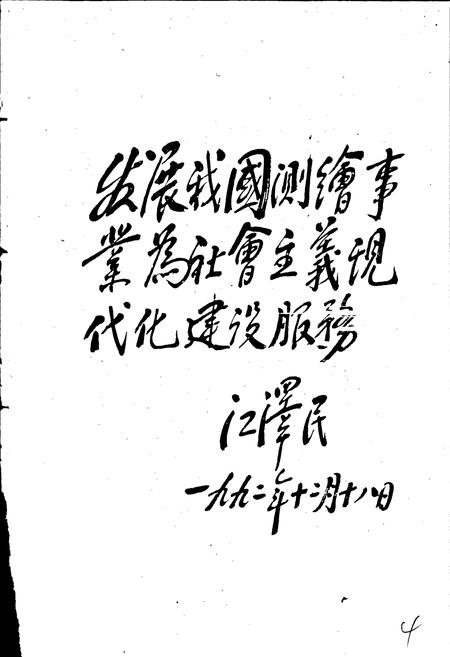 发展我國测繪事
業為社會主義现
代化建设服務
江澤民
一九九二年十二月十八日
4